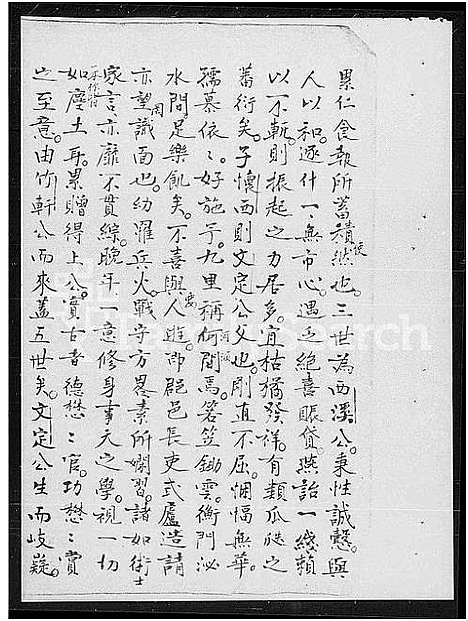 累仁食報所蓄積使然也。三世為西溪公。秉性誠慤。與
人以和。逐什一無市心。遇乏絕喜賑貸。燕詒一綫賴
以不斬。則振起之力居多。宜枯搘發祥。有類瓜瓞之
蕃衍矣。子懷西則文定公父也。剛直不屈。悃愊無華。
孺慕依依。好施予。九里稱何間焉。笠鋤雲。衡門泌
水間。足樂飢矣。不喜與人遊。即郡邑長吏式廬造請
亦望識面也。幼罹兵火。戰守方畧素所嫻習。諸如術士
家言。亦靡不貫綜。晚年一意修身事天之學。視一切
如塵土耳。累贈得上公。實古者德懋懋官。功懋懋賞
之至意。由竹軒公而來蓋五世矣。文定公生而岐嶷。